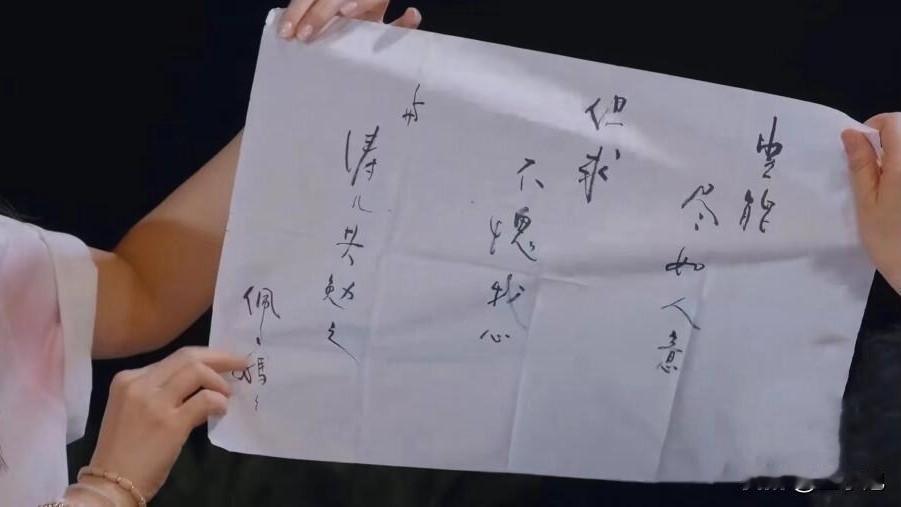 岂能
尽如人意
但求
不愧我心
与
涛儿共勉之
佩佩妈妈